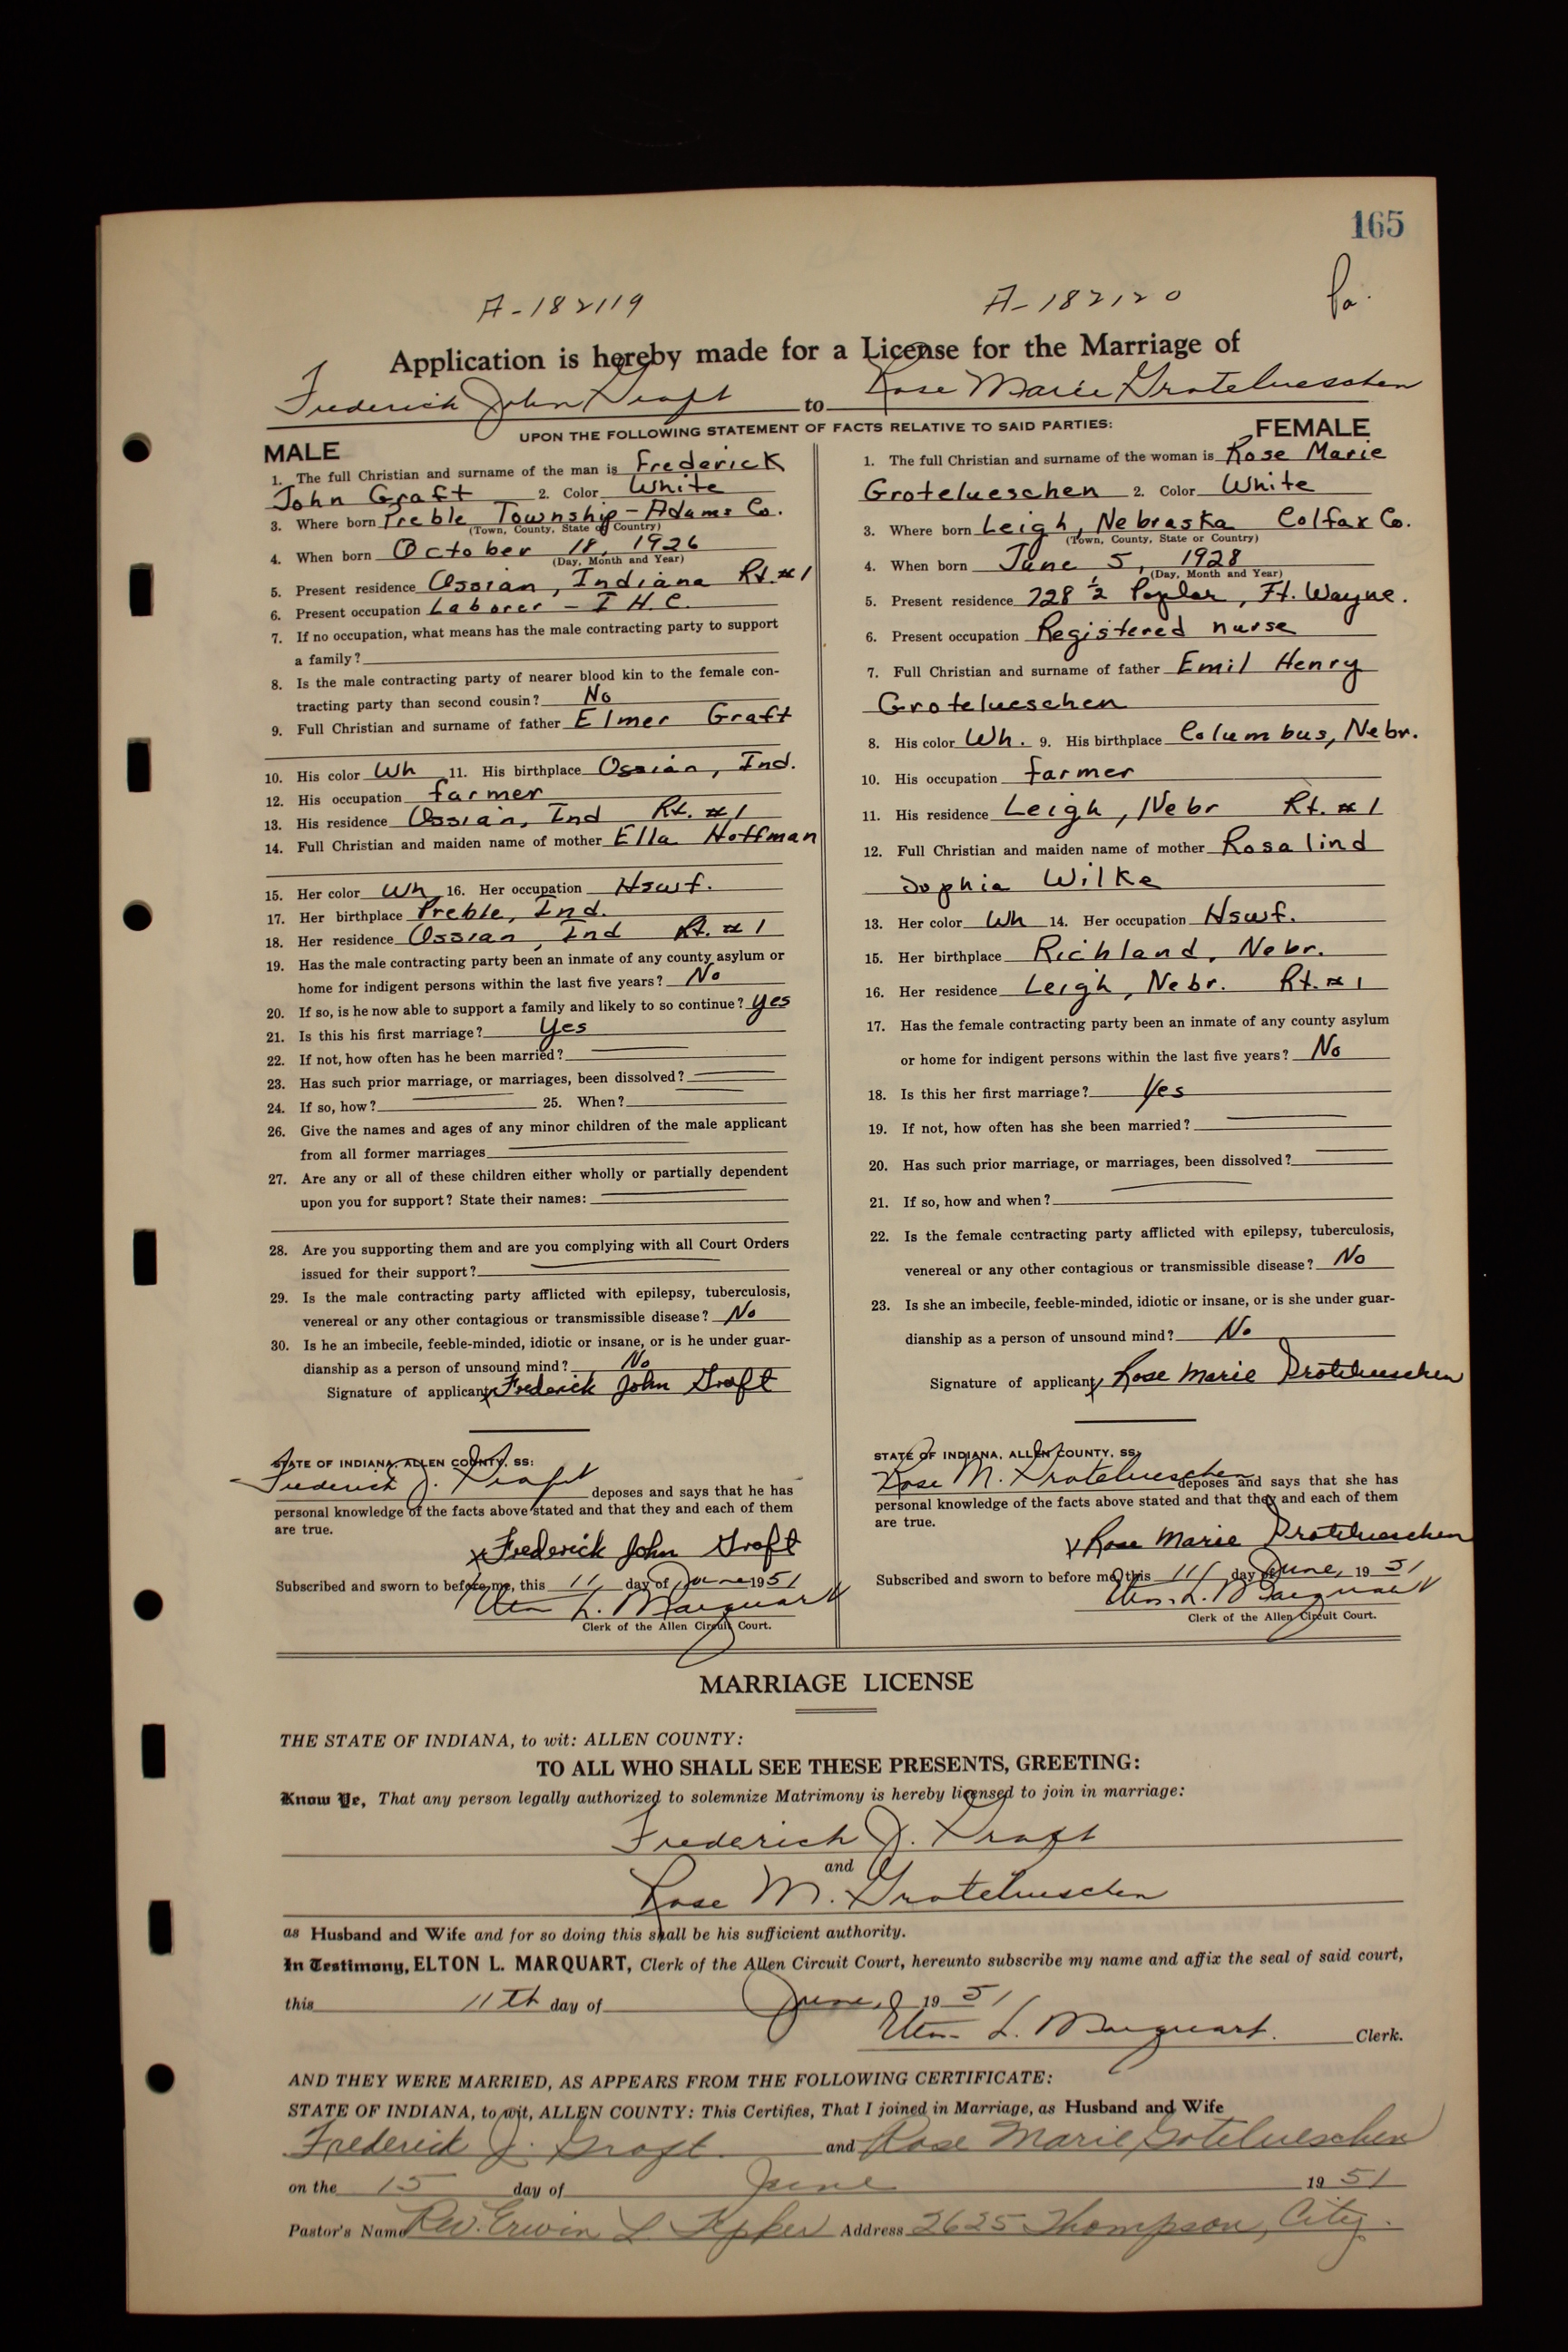 165
A-182119 A-182120
Application is hereby made for a License for the Marriage of
Frederick John Graft to Rose Marie Grotelueschen
UPON THE FOLLOWING STATEMENT OF FACTS RELATIVE TO SAID PARTIES:
MALE
1. The full Christian and surname of the man is Frederick
John Graft 2. Color White
3. Where born Preble Township - Adams Co.
(Town, County, State or Country)
4. When born October 18, 1926
(Day, Month and Year)
5. Present residence Ossian, Indiana Rt. #1
6. Present occupation Laborer - I H. C.
7. If no occupation, what means has the male contracting party to support
a family?
8. Is the male contracting party of nearer blood kin to the female con-
tracting party than second cousin? No
9. Full Christian and surname of father Elmer Graft
10. His color Wh 11. His birthplace Ossian, Ind.
12. His occupation farmer
13. His residence Ossian, Ind Rt. #1
14. Full Christian and maiden name of mother Ella Hoffman
15. Her color Wh 16. Her occupation Hswf.
17. Her birthplace Preble, Ind.
18. Her residence Ossian, Ind Rt. #1
19. Has the male contracting party been an inmate of any county asylum or
home for indigent persons within the last five years? No
20. If so, is he now able to support a family and likely to so continue? yes
21. Is this his first marriage? Yes
22. If not, how often has he been married?
23. Has such prior marriage, or marriages, been dissolved?
24. If so, how? 25. When?
26. Give the names and ages of any minor children of the male applicant
from all former marriages
27. Are any or all of these children either wholly or partially dependent
upon you for support? State their names:
28. Are you supporting them and are you complying with all Court Orders
issued for their support?
29. Is the male contracting party afflicted with epilepsy, tuberculosis,
venereal or any other contagious or transmissible disease? No
30. Is he an imbecile, feeble-minded, idiotic or insane, or is he under guar-
dianship as a person of unsound mind? No
Signature of applicant x Frederick John Graft
STATE OF INDIANA, ALLEN COUNTY, SS:
Frederick J. Graft deposes and says that he has
personal knowledge of the facts above stated and that they and each of them
are true.
x Frederick John Graft
Subscribed and sworn to before me, this 11 day of June 1951
Elton L. Marquart
Clerk of the Allen Circuit Court.
FEMALE
1. The full Christian and surname of the woman is Rose Marie
Grotelueschen 2. Color White
3. Where born Leigh, Nebraska Colfax Co.
(Town, County, State or Country)
4. When born June 5, 1928
(Day, Month and Year)
5. Present residence 728 1/2 Poplar, Ft. Wayne.
6. Present occupation Registered nurse
7. Full Christian and surname of father Emil Henry
Grotelueschen
8. His color Wh. 9. His birthplace Columbus, Nebr.
10. His occupation farmer
11. His residence Leigh, Nebr Rt. #1
12. Full Christian and maiden name of mother Rosalind
Sophia Wilke
13. Her color Wh 14. Her occupation Hswf.
15. Her birthplace Richland, Nebr.
16. Her residence Leigh, Nebr. Rt. #1
17. Has the female contracting party been an inmate of any county asylum
or home for indigent persons within the last five years? No
18. Is this her first marriage? Yes
19. If not, how often has she been married?
20. Has such prior marriage, or marriages, been dissolved?
21. If so, how and when?
22. Is the female contracting party afflicted with epilepsy, tuberculosis,
venereal or any other contagious or transmissible disease? No
23. Is she an imbecile, feeble-minded, idiotic or insane, or is she under guar-
dianship as a person of unsound mind? No
Signature of applicant x Rose Marie Grotelueschen
STATE OF INDIANA, ALLEN COUNTY, SS:
Rose M. Grotelueschen deposes and says that she has
personal knowledge of the facts above stated and that they and each of them
are true.
x Rose Marie Grotelueschen
Subscribed and sworn to before me, this 11 day of June, 1951
Elton L. Marquart
Clerk of the Allen Circuit Court.
MARRIAGE LICENSE
THE STATE OF INDIANA, to wit: ALLEN COUNTY:
TO ALL WHO SHALL SEE THESE PRESENTS, GREETING:
Know Ye, That any person legally authorized to solemnize Matrimony is hereby licensed to join in marriage:
Frederick J. Graft
and
Rose M. Grotelueschen
as Husband and Wife and for so doing this shall be his sufficient authority.
In Testimony, ELTON L. MARQUART, Clerk of the Allen Circuit Court, hereunto subscribe my name and affix the seal of said court,
this 11th day of June, 1951
Elton L. Marquart. Clerk.
AND THEY WERE MARRIED, AS APPEARS FROM THE FOLLOWING CERTIFICATE:
STATE OF INDIANA, to wit, ALLEN COUNTY: This Certifies, That I joined in Marriage, as Husband and Wife
Frederick J. Graft and Rose Marie Gotelueschen
on the 15 day of June 1951
Pastor's Name Rev. Erwin L Address 2625 Thompson, City.